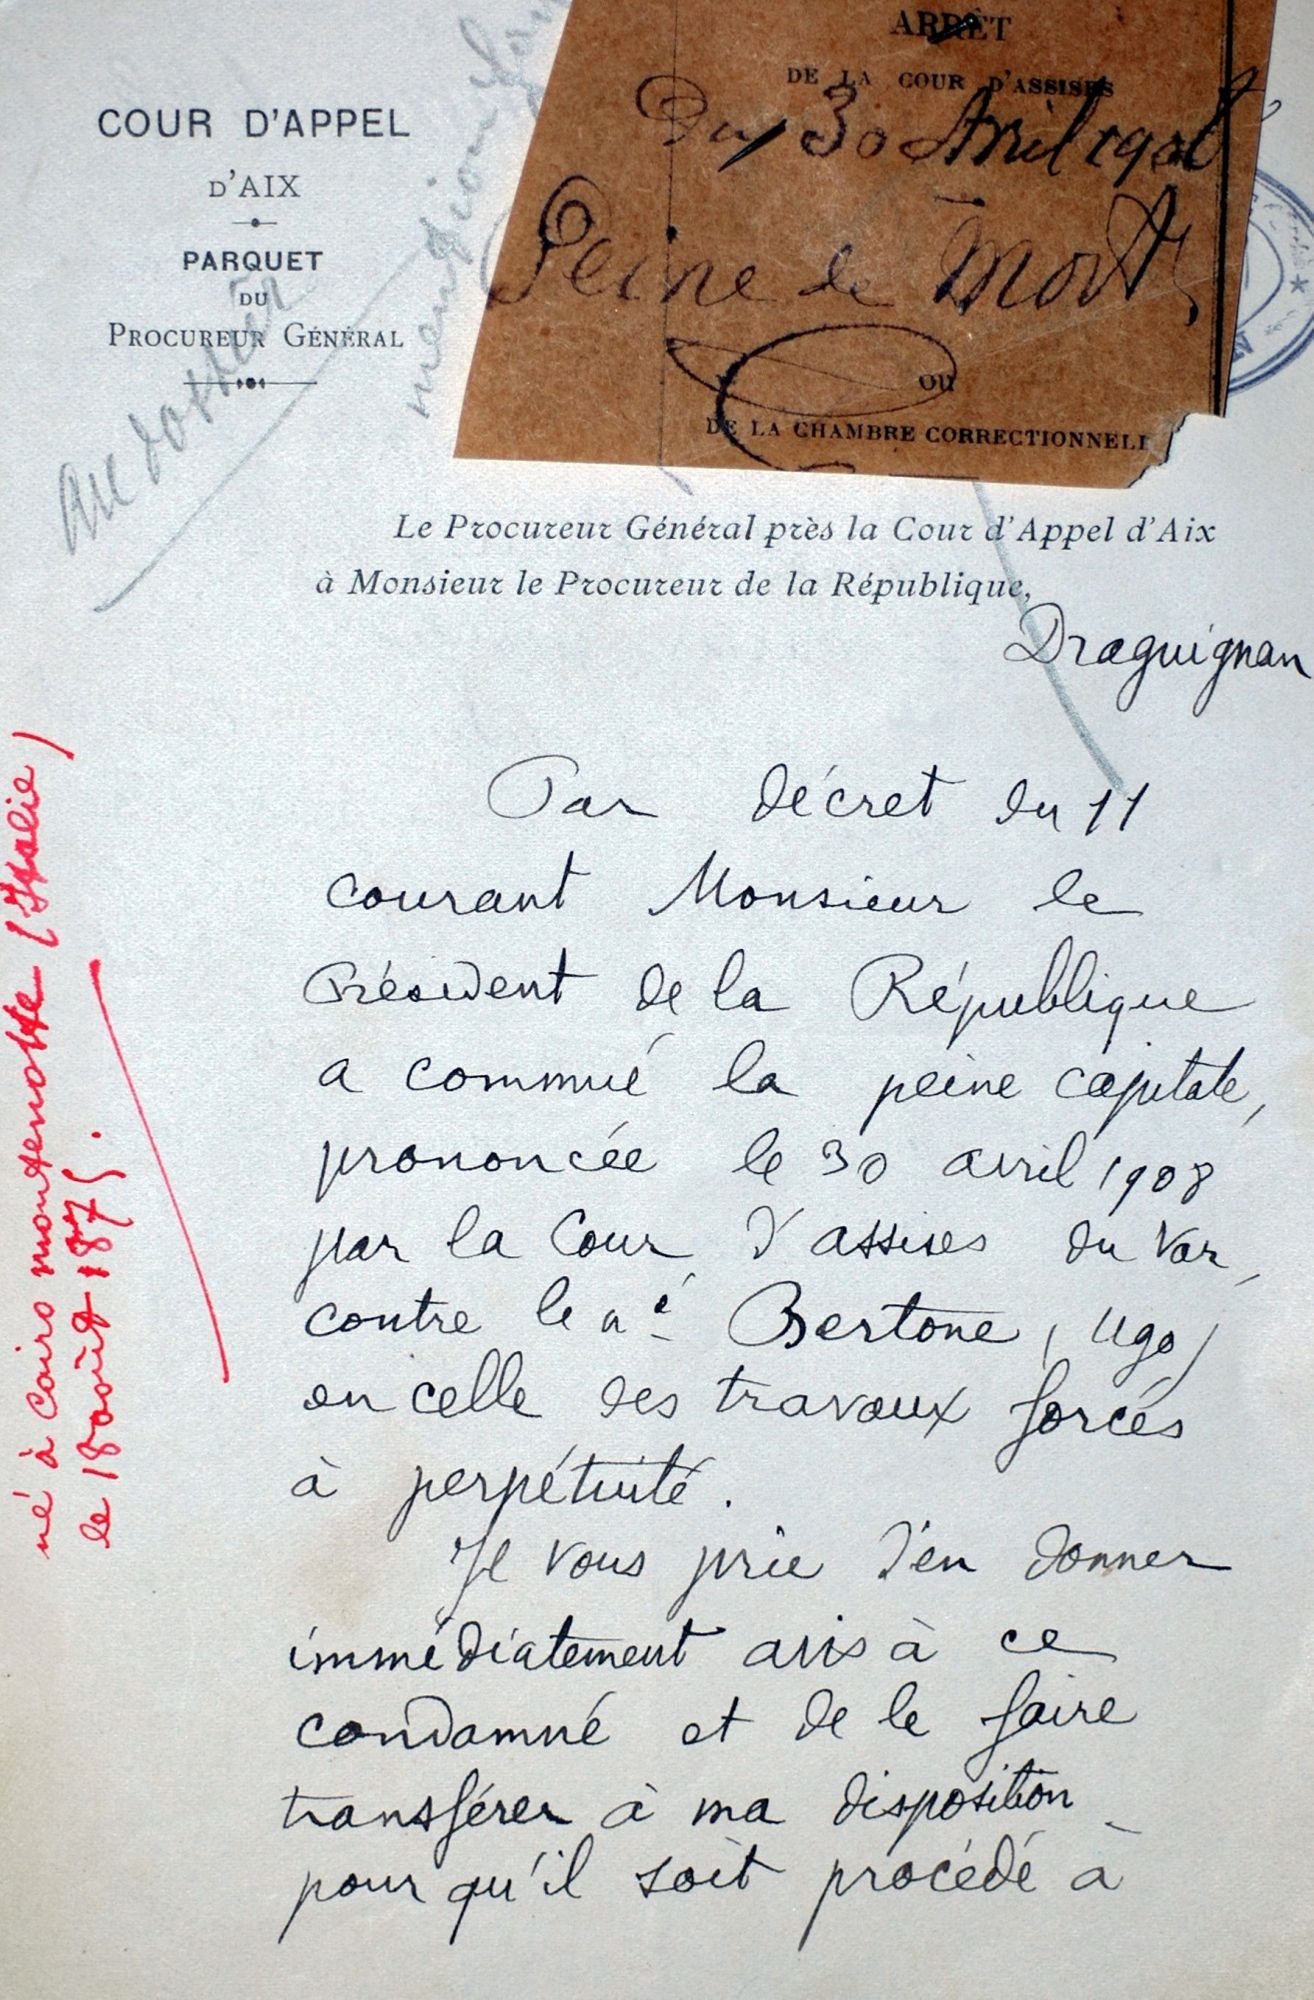 COUR D'APPEL
D'AIX
PARQUET
DU
PROCUREUR GÉNÉRAL
Au dossier
ARRÊT
DE LA COUR D'ASSISES
Du 30 Avril 1908
Peine de Mort
OU
DE LA CHAMBRE CORRECTIONNELL
Le Procureur Général près la Cour d'Appel d'Aix
à Monsieur le Procureur de la République,
Draguignan
Par décret du 11
courant Monsieur le
Président de la République
a commué la peine capitale,
prononcée le 30 avril 1908
par la Cour d'assises du Var,
contre le né Bertone (Ugo)
en celle des travaux forcés
à perpétuité.
Je vous prie d'en donner
immédiatement avis à ce
condamné et de le faire
transférer à ma disposition
pour qu'il soit procédé à
né à Cairo montenotte (Italie)
le 18 août 1875.